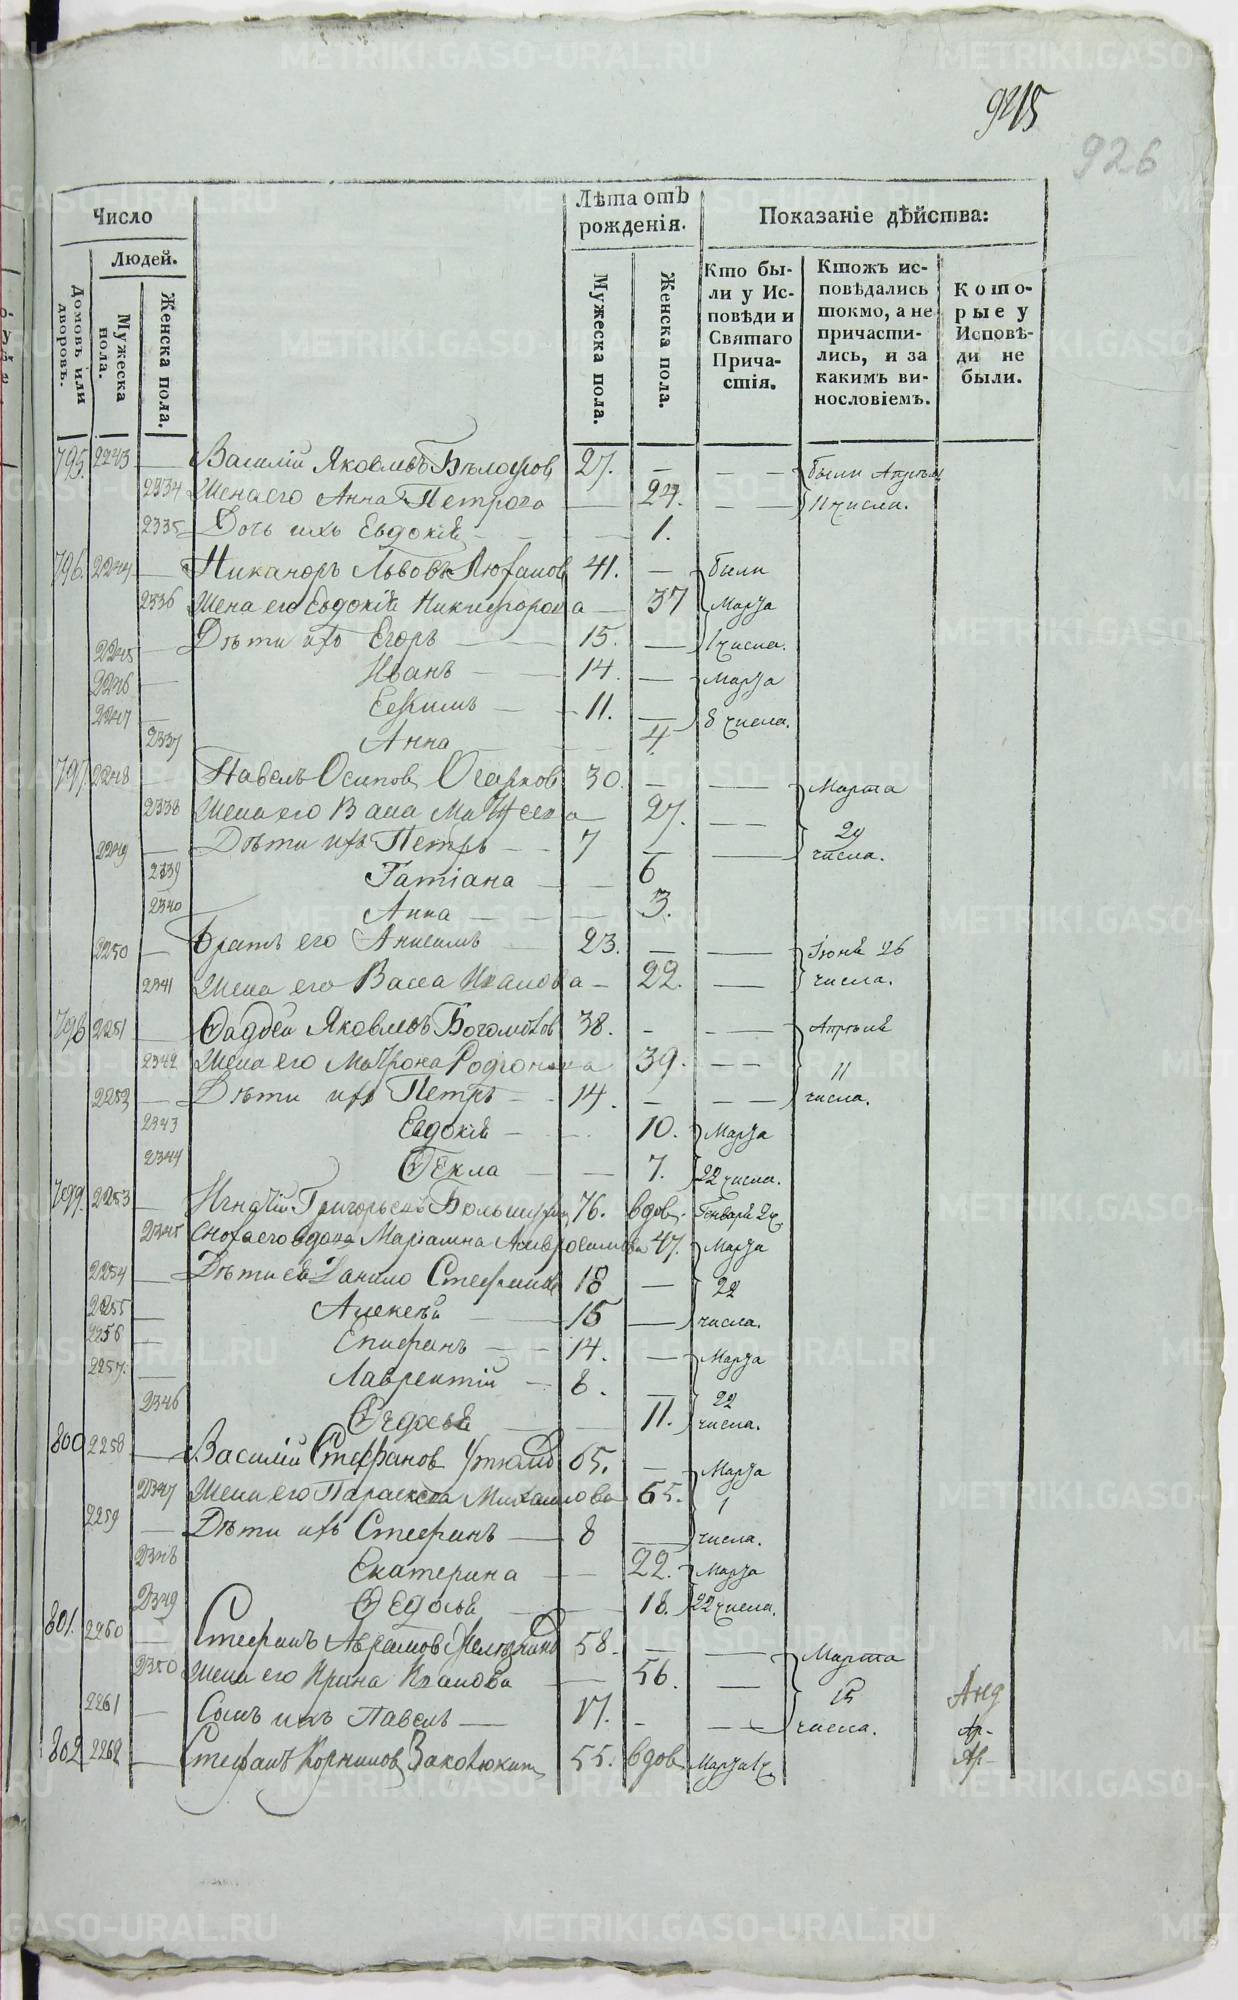 9215
926
Число
Лѣта отъ рожденія.
Показаніе дѣйства:
Людей.
Домовъ или дворовъ.
Мужеска пола.
Женска пола.
Мужеска пола.
Женска пола.
Кто были у Исповѣди и Святаго Причастія.
Ктожъ исповѣдались токмо, а не причастились, и за какимъ винословіемъ.
Которые у Исповѣди не были.
795. 2243 — Василій Яковлевъ 27. — — — были Апрѣля
2334 Жена его Анна Петрова — 24. — — 11 числа.
2335 Дочь ихъ Евдокія — — 1.
796. 2244 — Никаноръ Львовъ 41. — были
2336 Жена его Евдокія Никифорова — 37 Марта
2245 — Дѣти ихъ Егоръ — — 15. — 1 числа.
2246 — Иванъ — — 14. — Марта
2247 — — — 11. — 8 числа.
2337 Анна — 4.
797. 2248 — Павелъ Осиповъ Огарков 30. — — Марта
2338 Жена его — 27. — —
2249 — Дѣти ихъ Петръ — — 7 — — числа.
2339 Татіана — — 6
2340 Анна — — — 3.
2250 — Братъ его Анисимъ — 23. — — Іюня 26
2341 Жена его Васса Иванова — 22. — числа.
798 2251 — Фадѣй Яковлевъ 38. — — — Апрѣля
2342 Жена его Матрона Родіонова 39. — — 11
2252 — Дѣти ихъ Петръ — — 14. — — — числа.
2343 Евдокія — — 10. Марта
2344 Ѳекла — — 7. 22 числа.
799. 2253 — Игнатій Григорьевъ 76. вдов. Генваря
2345 Сноха его вдова Маріамна Амвросимова 47. Марта
2254 — Дѣти ея Данило 18 — 22
2255 — Алексѣй — 15 — числа.
2256 — Епифанъ — — 14. — Марта
2257. — Лаврентій — 8. — 22
2346 — 11. числа.
800 2258 — Василій Стефановъ 65. — Марта
2347 Жена его Параскева Михаилова 65. 1
2259 — Дѣти ихъ Стефанъ — 8 — числа.
2348 Екатерина — — 22. Марта
2349 Ѳедосья — — 18. 22 числа.
801. 2260 — Стефанъ Аврамов 58. — — Марта
2350 Жена его Ирина Иванова — 56. — 15
2261 — Сынъ ихъ Павелъ — 17. — — — числа.
802 2262 — Стефанъ Корниловъ 55. вдов Марта